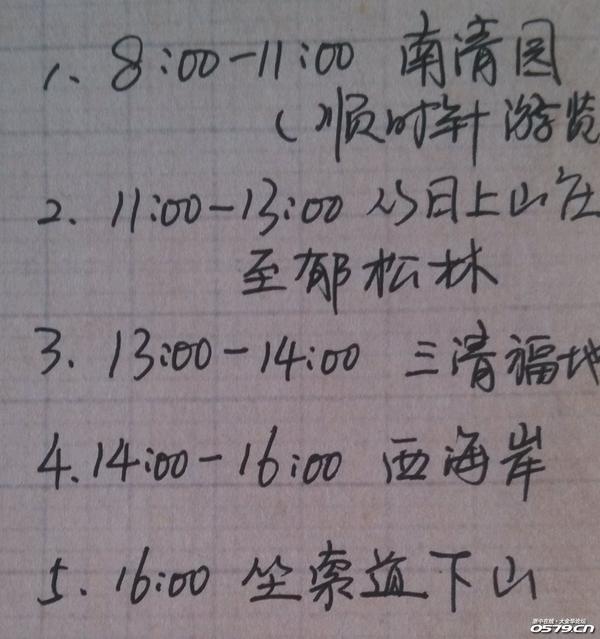 1. 8:00-11:00 南清园
(顺时针游览
2. 11:00-13:00 从日上山庄
至郁松林
3. 13:00-14:00 三清福地
4. 14:00-16:00 西海岸
5. 16:00 坐索道下山
0579.CN